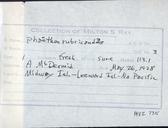 COLLECTION OF MILTON S. RAY
Phaethon rubricauda
1 Fresh Sure 113.1
A McDermid May 26, 1928
Midway Isl - Leeward Isl - No Pacific